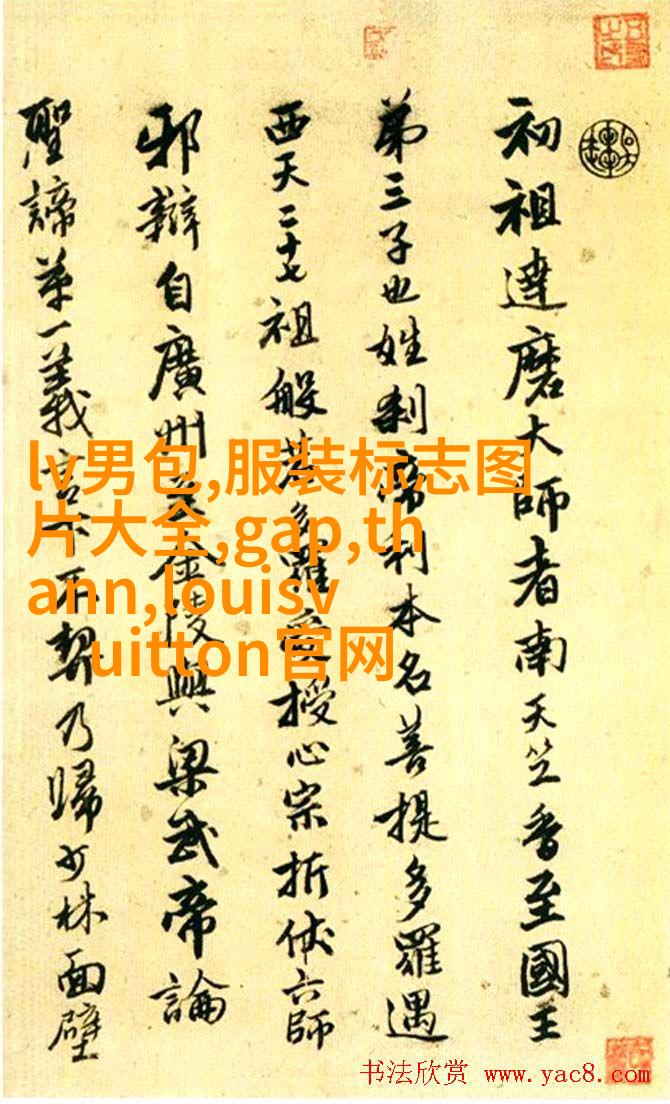 初祖達磨大師者南天竺香至國王
第三子也姓刹帝利本名菩提多羅遇
西天二十七祖般若多羅受授心宗折伏六師
邪辯自廣州至金陵與梁武帝論
聖諦第一義言下不契乃歸少林面壁
lv男包,服装标志图
片大全,gap,th
ann,louisv
uitton官网
书法欣赏 www.yac8.com